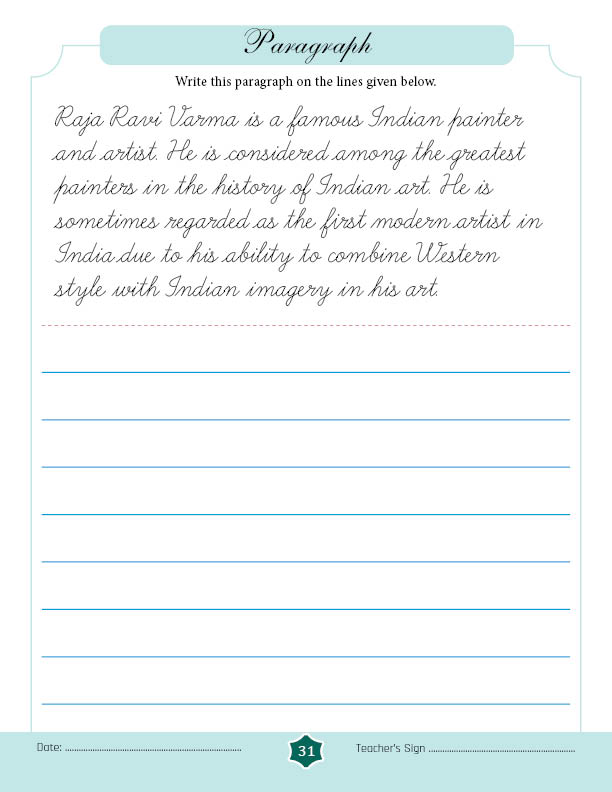 Paragraph
Write this paragraph on the lines given below.
Raja Ravi Varma is a famous Indian painter
and artist. He is considered among the greatest
painters in the history of Indian art. He is
sometimes regarded as the first modern artist in
India due to his ability to combine Western
style with Indian imagery in his art.
Date: ........................................................................
31
Teacher's Sign ............................................................